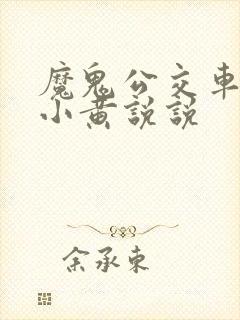 魔鬼公交車
小黃説説
余承東